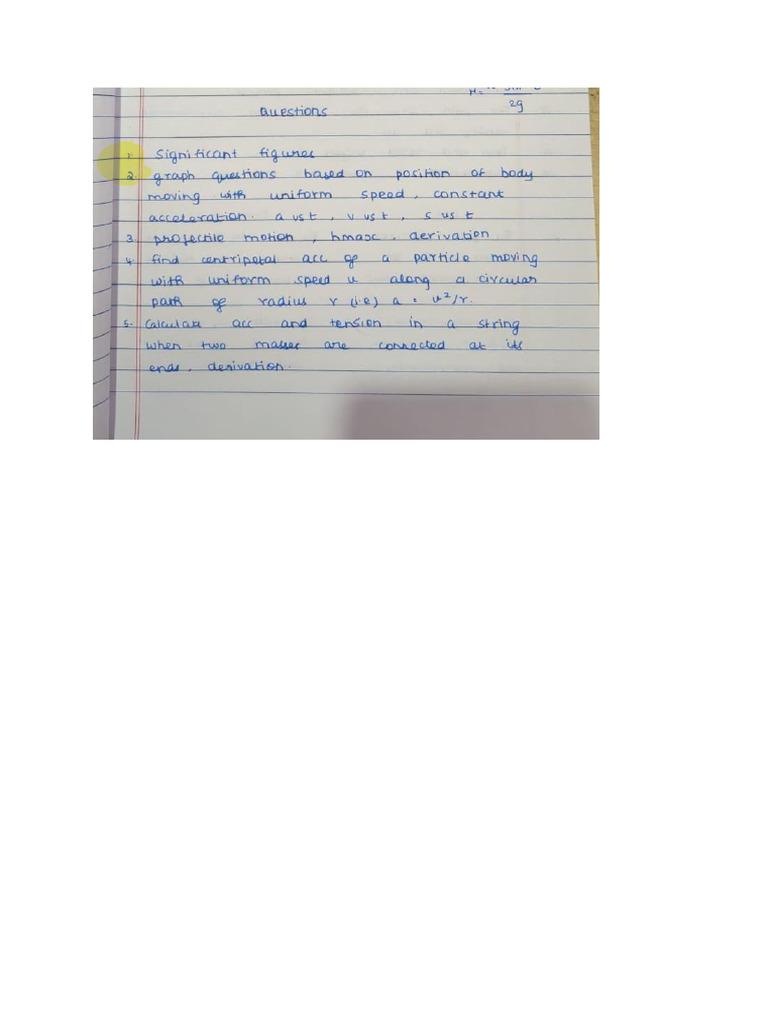 2g
Questions
1. Significant figures
2. graph questions based on position of body
moving with uniform speed, constant
acceleration. a vs t, v vs t, s vs t
3. projectile motion, hmax. derivation
4. find centripetal acc of a particle moving
with uniform speed u along a circular
path of radius r (i.e) a = u²/r.
5. Calculate acc and tension in a string
when two masses are connected at its
ends. derivation.